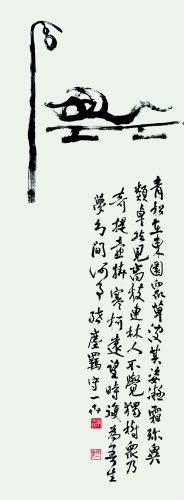 青松在東園眾草沒其姿凝霜殄異
類卓然見高枝連林人不覺獨樹眾乃
奇提壺掛寒柯遠望時復為吾生
夢幻間何事紲塵羈 守一